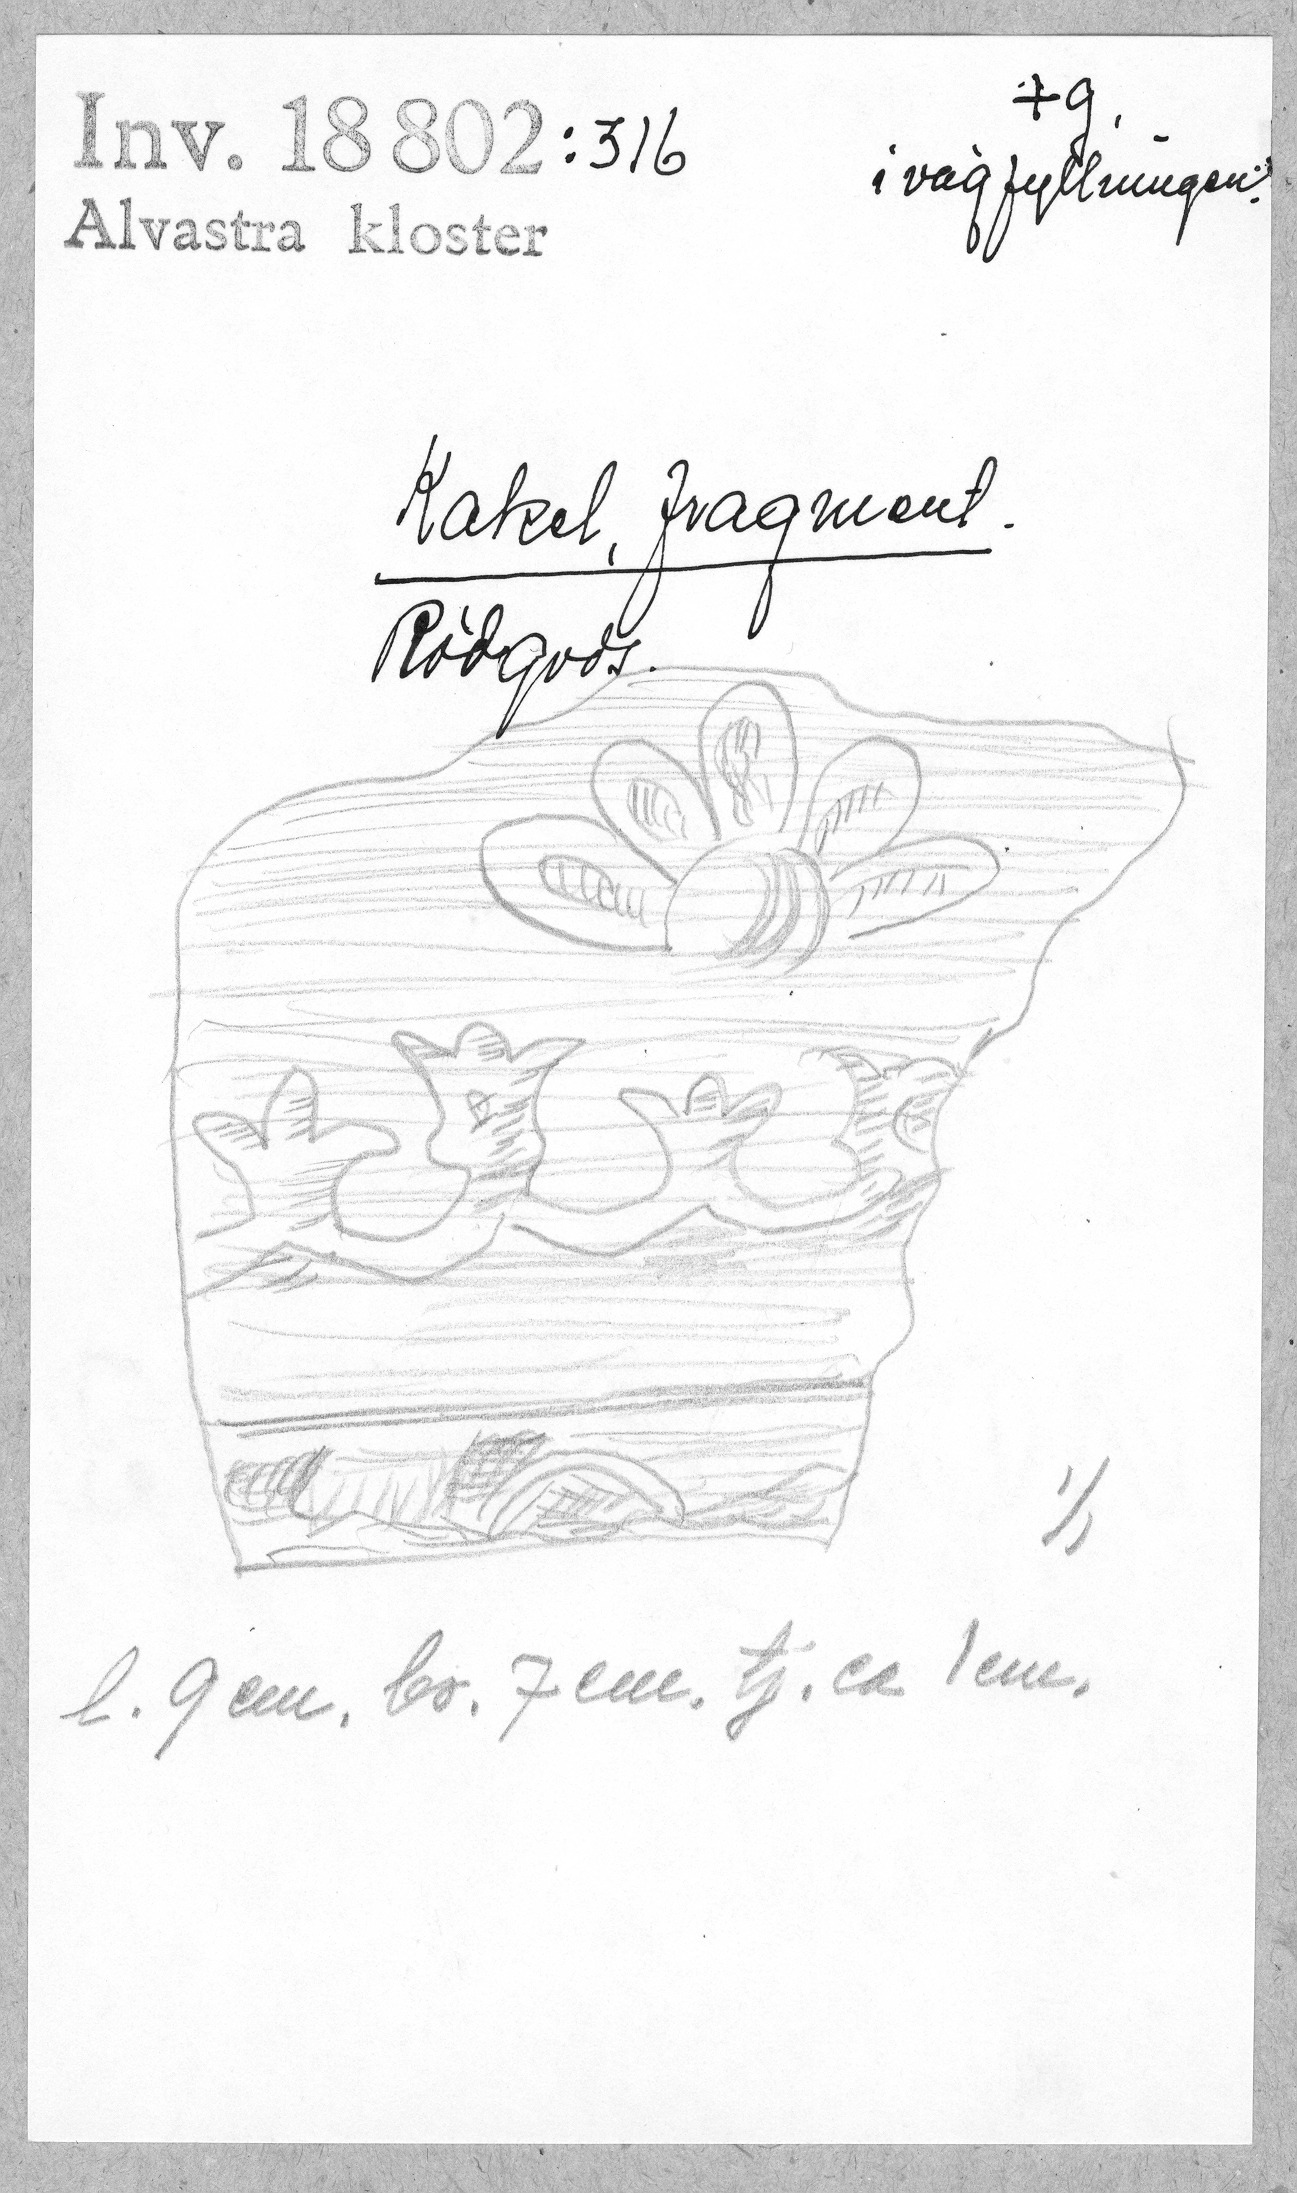 Inv. 18 802:316
Alvastra kloster
i vägfyllningen.
Kakel, fragment.
Rödgods.
1/1
l. 9 cm. br. 7 cm. tj. ca 1 cm.